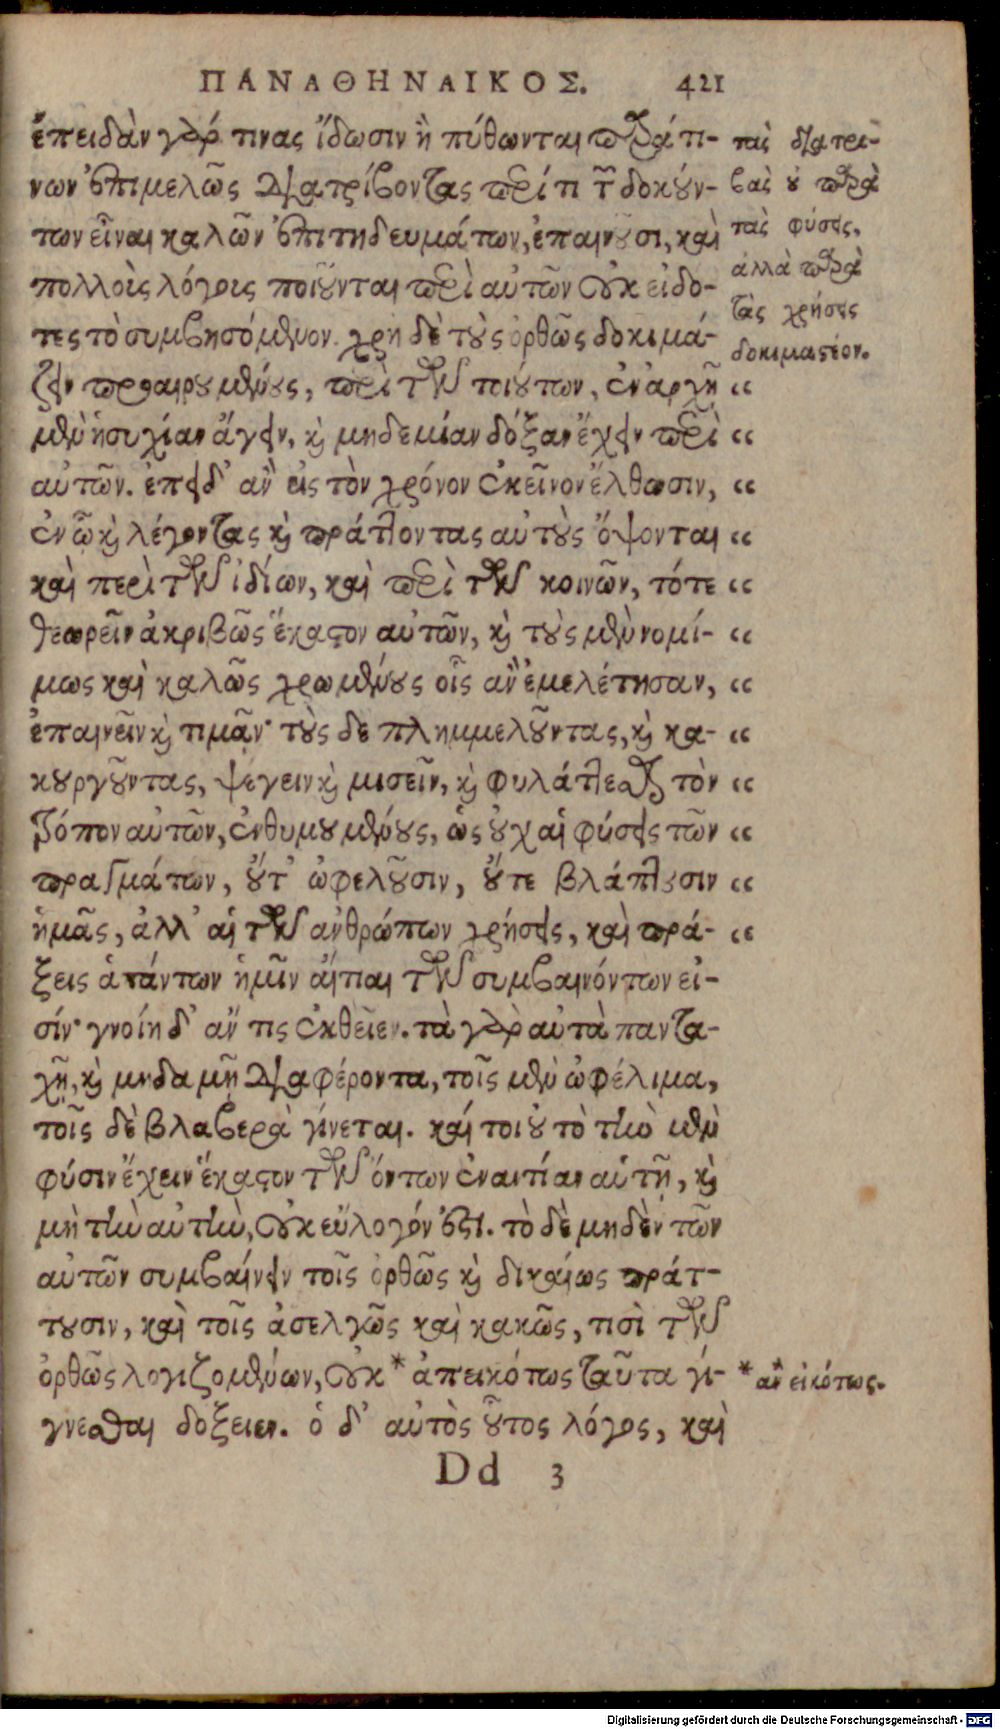 ΠΑΝΑΘΗΝΑΙΚΟΣ. 421
ἐπειδὰν γάρ τινας ἴδωσιν ἢ πύθωνται παρά τι-
νων ἐπιμελῶς διατρίβοντας περί τι τῶν δοκούν-
των εἶναι καλῶν ἐπιτηδευμάτων, ἐπαινοῦσι, καὶ
πολλοὺς λόγους ποιοῦνται περὶ αὐτῶν οὐκ εἰδό-
τες τὸ συμβησόμενον. χρὴ δὲ τοὺς ὀρθῶς δοκιμά-
ζειν προαιρουμένους, περὶ τῶν τοιούτων, ἐν ἀρχῇ “
μὲν ἡσυχίαν ἄγειν, καὶ μηδεμίαν δόξαν ἔχειν περὶ “
αὐτῶν. ἐπειδ' ἂν εἰς τὸν χρόνον ἐκεῖνον ἔλθωσιν, “
ἐν ᾧ καὶ λέγοντας καὶ πράττοντας αὐτοὺς ὄψονται “
καὶ περὶ τῶν ἰδίων, καὶ περὶ τῶν κοινῶν, τότε “
θεωρεῖν ἀκριβῶς ἕκαστον αὐτῶν, καὶ τοὺς μὲν νομί- “
μως καὶ καλῶς χρωμένους οἷς ἂν ἐμελέτησαν, “
ἐπαινεῖν καὶ τιμᾶν· τοὺς δε πλημμελοῦντας, καὶ κα- “
κουργοῦντας, ψέγειν καὶ μισεῖν, καὶ φυλάττεσθαι τὸν “
τρόπον αὐτῶν, ἐνθυμουμένους, ὡς οὐχ αἱ φύσεις τῶν “
πραγμάτων, οὔτ' ὠφελοῦσιν, οὔτε βλάπτουσιν “
ἡμᾶς, ἀλλ' αἱ τῶν ἀνθρώπων χρήσεις, καὶ πρά- “
ξεις ἁπάντων ἡμῖν αἴτιαι τῶν συμβαινόντων εἰ-
σίν· γνοίη δ' ἄν τις ἐκθεῖεν. τὰ γὰρ αὐτὰ παντα-
χῇ, καὶ μηδαμῇ διαφέροντα, τοῖς μὲν ὠφέλιμα,
τοῖς δὲ βλαβερὰ γίνεται. καί τοι οὐ τὸ τὴν μὲν
φύσιν ἔχειν ἕκαστον τῶν ὄντων ἐναντίαν αὑτῇ, καὶ
μὴ τὴν αὐτὴν, οὐκ εὔλογόν ἐστι. τὸ δὲ μηδὲν τῶν
αὐτῶν συμβαίνειν τοῖς ὀρθῶς καὶ δικαίως πράτ-
τουσιν, καὶ τοῖς ἀσελγῶς καὶ κακῶς, τισὶ τῶν
ὀρθῶς λογιζομένων, οὐκ * ἀπεικότως ταῦτα γί-
γνεσθαι δόξειεν. ὁ δ' αὐτὸς οὗτος λόγος, καὶ
Dd 3
τὰς διατρι-
βὰς οὐ παρὰ
τὰς φύσεις,
ἀλλὰ παρὰ
τὰς χρήσεις
δοκιμαστέον.
* ἂν εἰκότως.
Digitalisierung gefördert durch die Deutsche Forschungsgemeinschaft - DFG